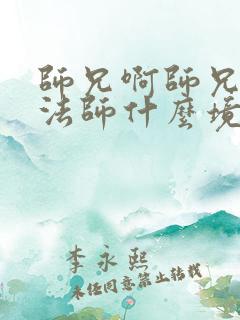 師兄啊師兄
法師什麼境
李永熙
未經同意禁止轉載